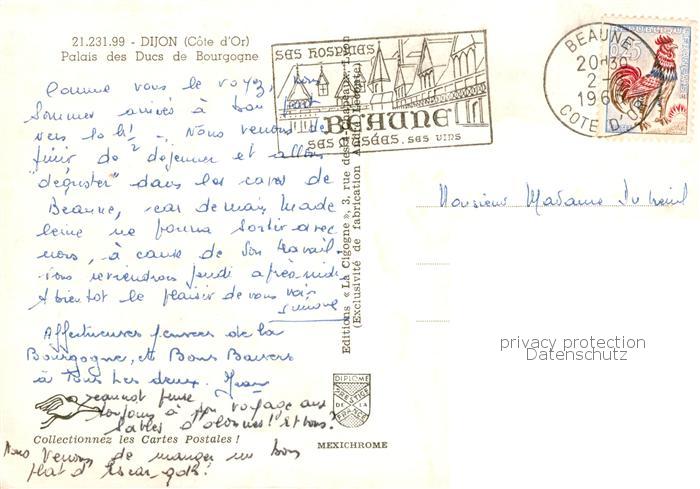 21.231.99 - DIJON (Côte d'Or)
Palais des Ducs de Bourgogne
Comme vous le voyez, nous
sommes arrivés à bon port
vers 10h! -. Nous venons de
finir de déjeuner et allons
"déguster" dans les caves de
Beaune, car demain, Made
leine ne pourra sortir avec
nous, à cause de son travail.
Nous reviendrons jeudi après-midi
A bientôt le plaisir de vous voir
Simone
Affectueuses pensées de la
Bourgogne, et Bons Baisers
à Tous Les deux. Jean
Jeannot pense
toujours à son voyage aux
Sables d'olonnes! et vous?
Collectionnez les Cartes Postales !
Nous venons de manger un bon
plat d'Escargots!
Editions « La Cigogne », 3, rue des Lyon
(Exclusivité de fabrication André Leconte)
DIPLOME
PRESTIGE
DE LA
FRANCE
MEXICHROME
SES HOSPICES
BEAUNE
SES MUSÉES. SES VINS
BEAUNE
20H30
2-
196
COTE D'OR
0,25
Monsieur Madame
privacy protection
Datenschutz